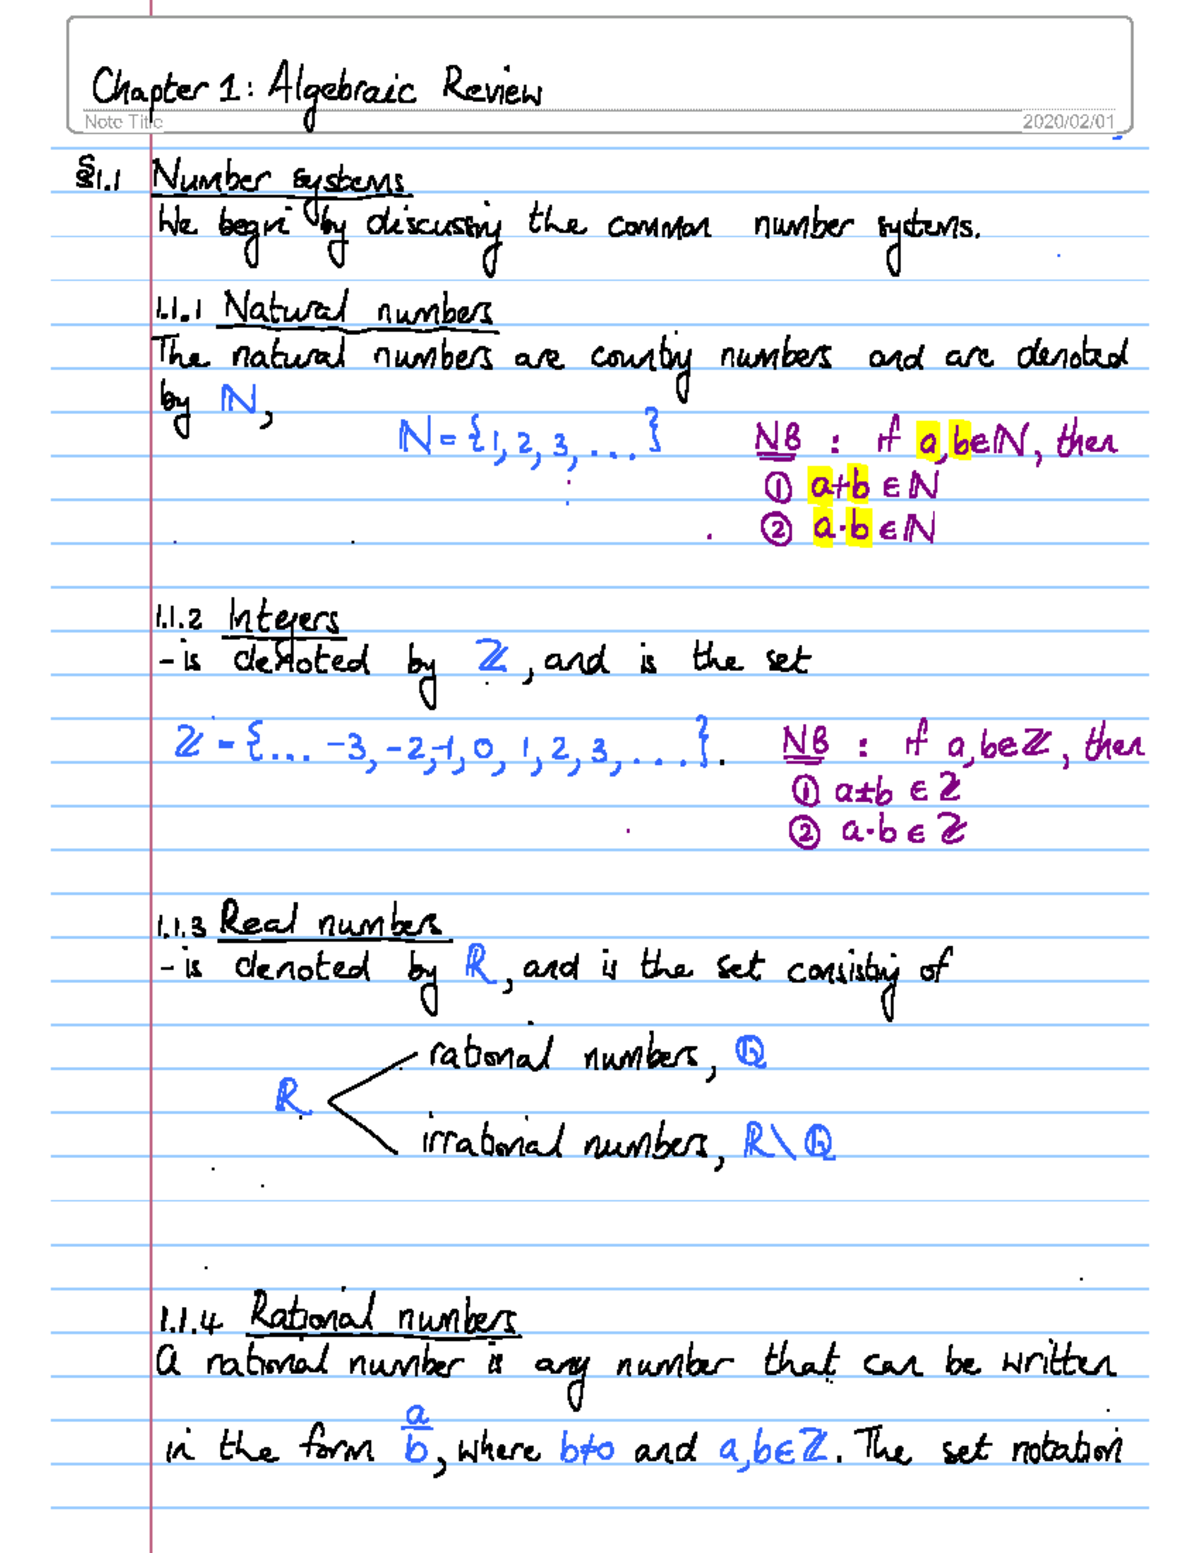 Chapter 1: Algebraic Review
Note Title 2020/02/01
§1.1 Number systems
We begin by discussing the common number systems.
1.1.1 Natural numbers
The natural numbers are counting numbers and are denoted
by ℕ,
ℕ = {1, 2, 3, ...} NB : if a, b ∈ ℕ, then
① a+b ∈ ℕ
② a·b ∈ ℕ
1.1.2 Integers
- is denoted by ℤ, and is the set
ℤ = {... -3, -2, -1, 0, 1, 2, 3, ....}. NB : if a, b ∈ ℤ, then
① a±b ∈ ℤ
② a·b ∈ ℤ
1.1.3 Real numbers
- is denoted by ℝ, and is the set consisting of
rational numbers, ℚ
ℝ
irrational numbers, ℝ\ℚ
1.1.4 Rational numbers
A rational number is any number that can be written
in the form a/b, where b≠0 and a, b ∈ ℤ. The set notation